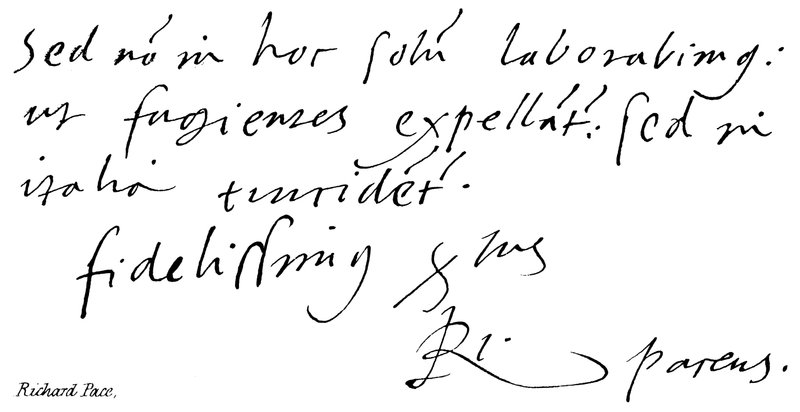 Sed nō in hoc solū laborabimꝰ:
ut fugientes expellāt: Sed in
italia trucidēt.
fidelissimꝰ
Ri. paceus.
Richard Pace,